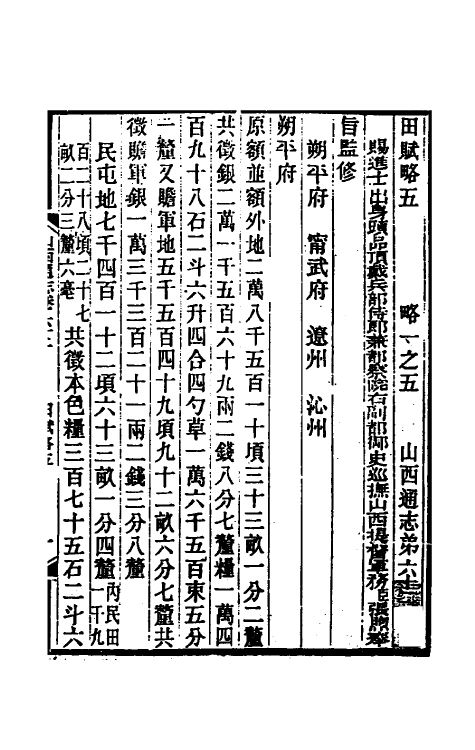 田賦略五　略一之五　山西通志弟六十
賜進士出身頭品頂戴兵部侍郎兼都察院右副都御史巡撫山西提督軍務臣張煦奉
旨監修
朔平府　甯武府　遼州　沁州
朔平府
原額並額外地二萬八千五百一十頃三十三畝一分二釐
共徵銀二萬一千五百六十九兩二錢八分七釐糧一萬四
百九十八石二斗六升四合四勺草一萬六千五百束五分
一釐又贍軍地五千五百四十九頃九十二畝六分七釐共
徵贍軍銀一萬三千三百二十一兩二錢三分八釐
民屯地七千四百一十二頃六十三畝一分四釐內民田一千九
百二十八頃二十七畝二分三釐六毫共徵本色糧三百七十五石二斗六